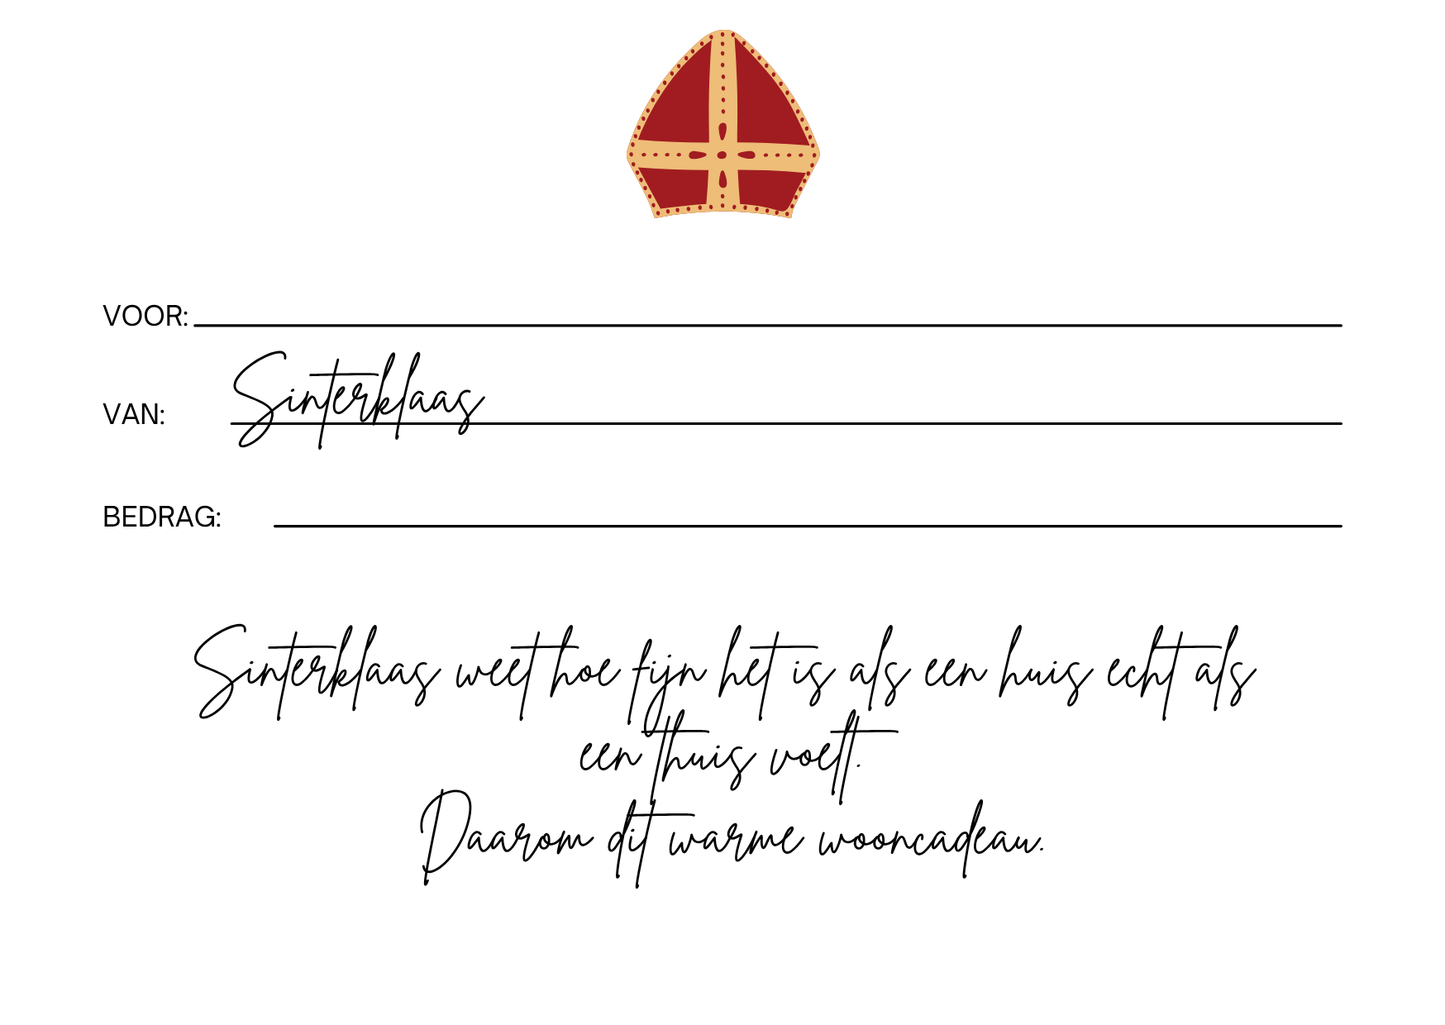 VOOR:
VAN: Sinterklaas
BEDRAG:
Sinterklaas weet hoe fijn het is als een huis echt als
een thuis voelt.
Daarom dit warme wooncadeau.